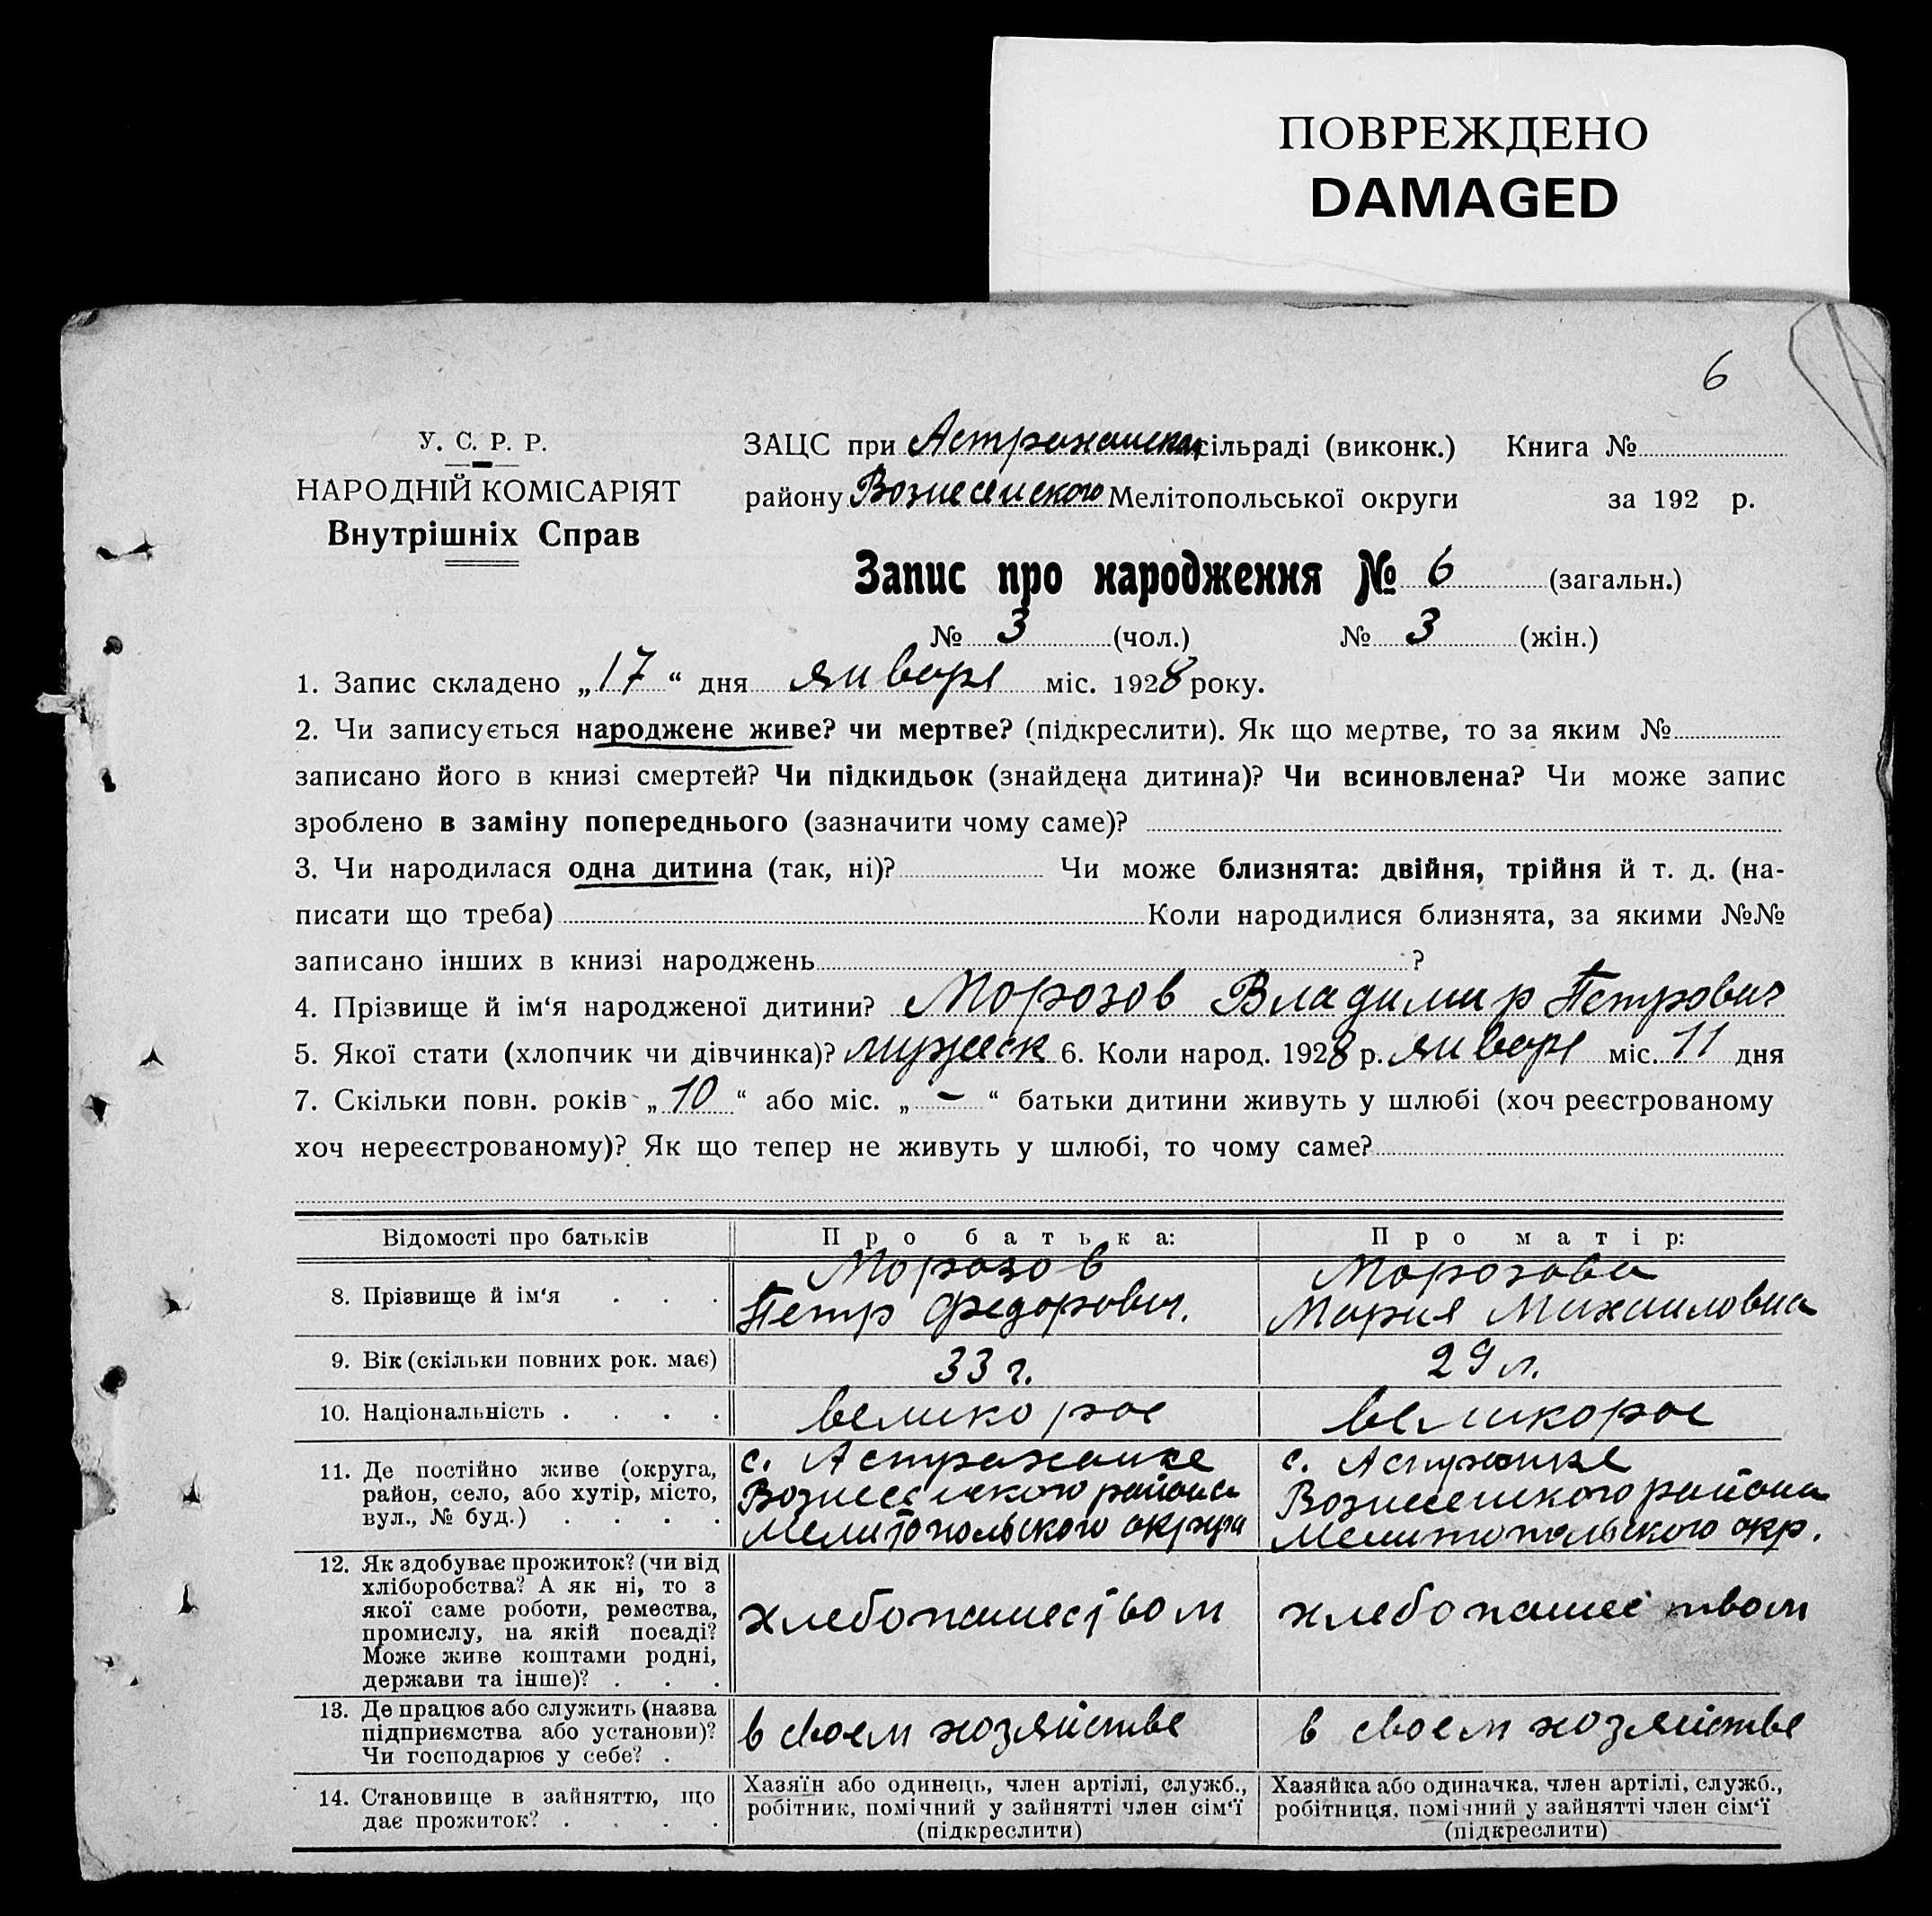 ПОВРЕЖДЕНО
DAMAGED
6
У. С. Р. Р.
НАРОДНІЙ КОМІСАРІЯТ
Внутрішніх Справ
ЗАЦС при Астраханском сільраді (виконк.) Книга №
району Вознесенского Мелітопольської округи за 192 р.
Запис про народження № 6 (загальн.)
№ 3 (чол.) № 3 (жін.)
1. Запис складено „17“ дня января міс. 1928 року.
2. Чи записується народжене живе? чи мертве? (підкреслити). Як що мертве, то за яким №
записано його в книзі смертей? Чи підкидьок (знайдена дитина)? Чи всиновлена? Чи може запис
зроблено в заміну попереднього (зазначити чому саме)?
3. Чи народилася одна дитина (так, ні)? Чи може близнята: двійня, трійня й т. д. (на-
писати що треба) Коли народилися близнята, за якими №№
записано інших в книзі народжень ?
4. Прізвище й ім‘я народженої дитини? Морозов Владимир Петрович
5. Якої стати (хлопчик чи дівчинка)? мужеск 6. Коли народ. 1928 р. января міс. 11 дня
7. Скільки повн. років „10“ або міс. „-“ батьки дитини живуть у шлюбі (хоч реєстрованому
хоч нереєстрованому)? Як що тепер не живуть у шлюбі, то чому саме?
Відомості про батьків Про батька: Про матір:
8. Прізвище й ім‘я . . . Морозов Петр Федорович. Морозова Мария Михаиловна
9. Вік (скільки повних рок. має) 33 г. 29 л.
10. Національність . . . . великорос великорос
11. Де постійно живе (округа,
район, село, або хутір, місто,
вул., № буд.) . . . .
с. Астраханке
Вознесенского района
Мелитопольского округа
с. Астраханке
Вознесенского района
Мелитопольского окр.
12. Як здобуває прожиток? (чи від
хліборобства? А як ні, то з
якої саме роботи, ремества,
промислу, на якій посаді?
Може живе коштами родні,
держави та інше)? . . .
хлебопашеством хлебопашеством
13. Де працює або служить (назва
підприємства або установи)?
Чи господарює у себе? .
в своем хозяйстве в своем хозяйстве
14. Становище в зайняттю, що
дає прожиток? . . . .
Хазяїн або одинець, член артілі, служб.,
робітник, помічний у зайнятті член сім‘ї
(підкреслити)
Хазяйка або одиначка, член артілі, служб.,
робітниця, помічний у зайнятті член сім‘ї
(підкреслити)